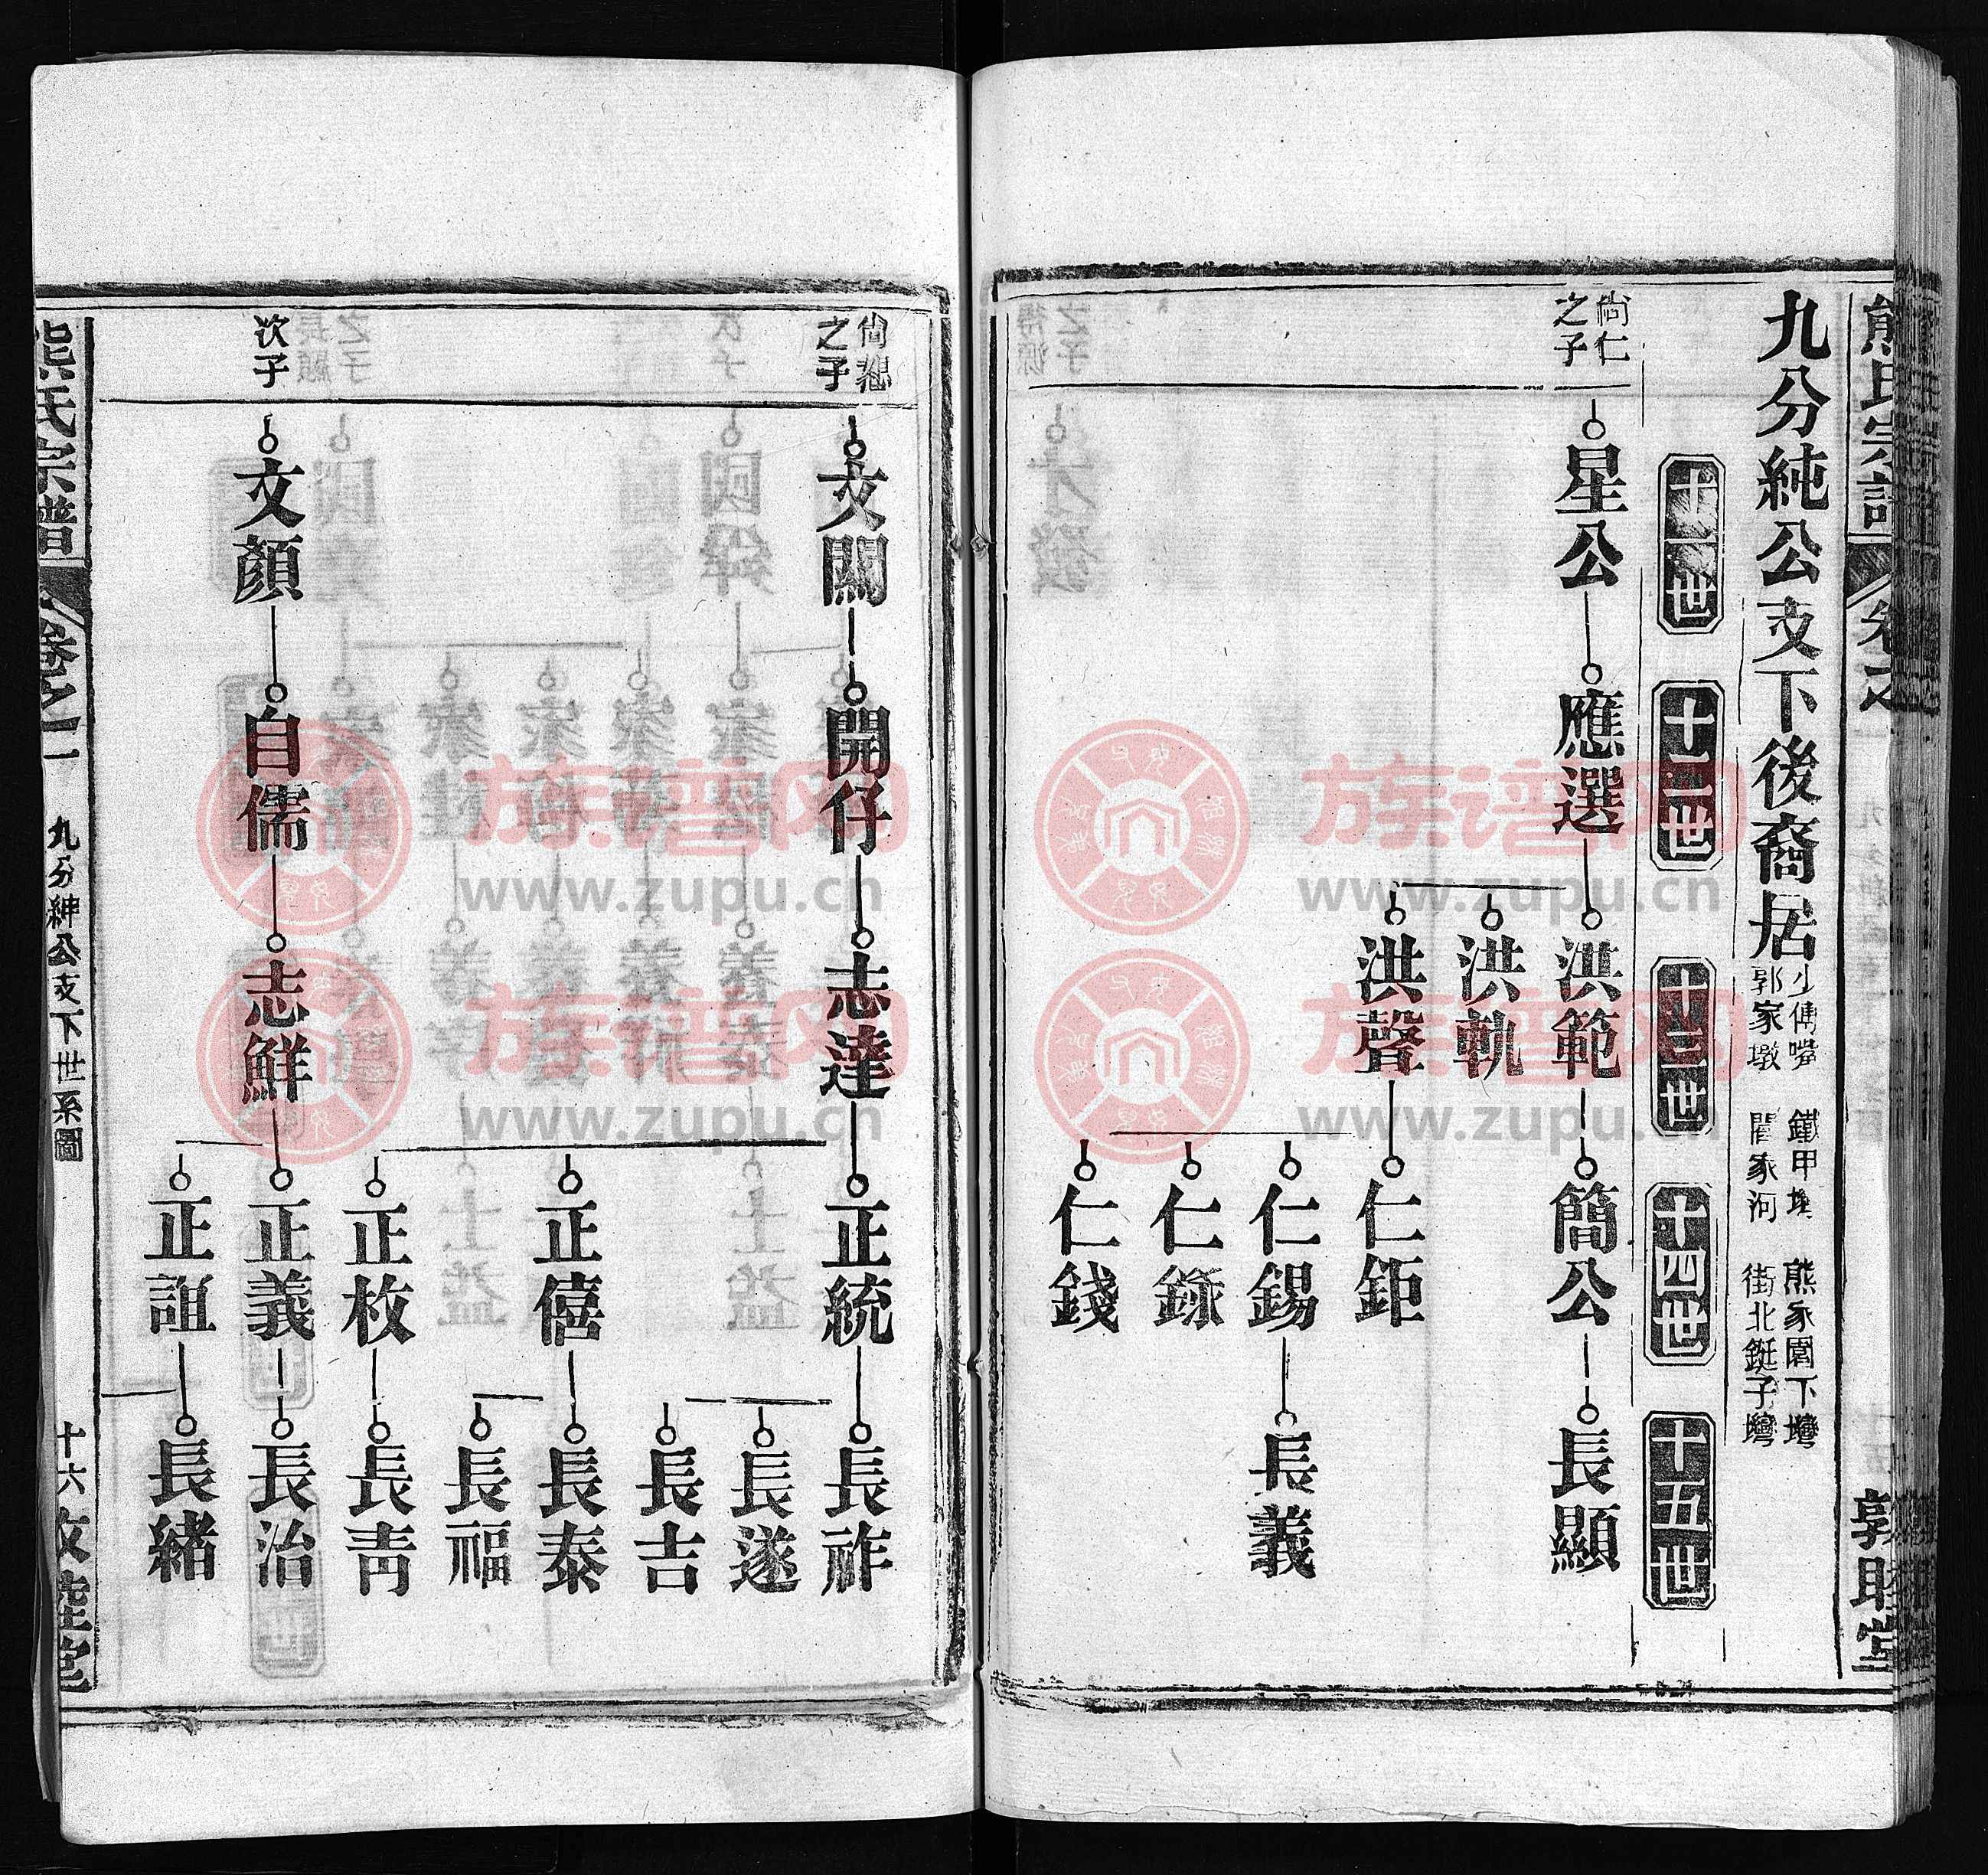 熊氏宗譜
卷之
敦睦堂
九分純公支下後裔居
少傅嘴 鐵甲 熊家園下灣
郭家墩 閻家河 街北鋌子灣
十一世
十二世
十三世
十四世
十五世
尙仁
之子
星公
應選
洪範
洪軌
洪聲
簡公
仁鉅
仁錫
仁錢
長顯
長義
尙
之子
文關
開仔
志達
正統
正僖
正枚
長祚
長遂
長吉
長泰
長福
長靑
次子
文顏
自儒
志鮮
正義
正誼
長治
長緒
熊氏宗譜
卷之一
九分紳公支下世系圖
十六
敦睦堂
族谱网
www.zupu.cn
族谱网
www.zupu.cn
族谱网
www.zupu.cn
族谱网
www.zupu.cn